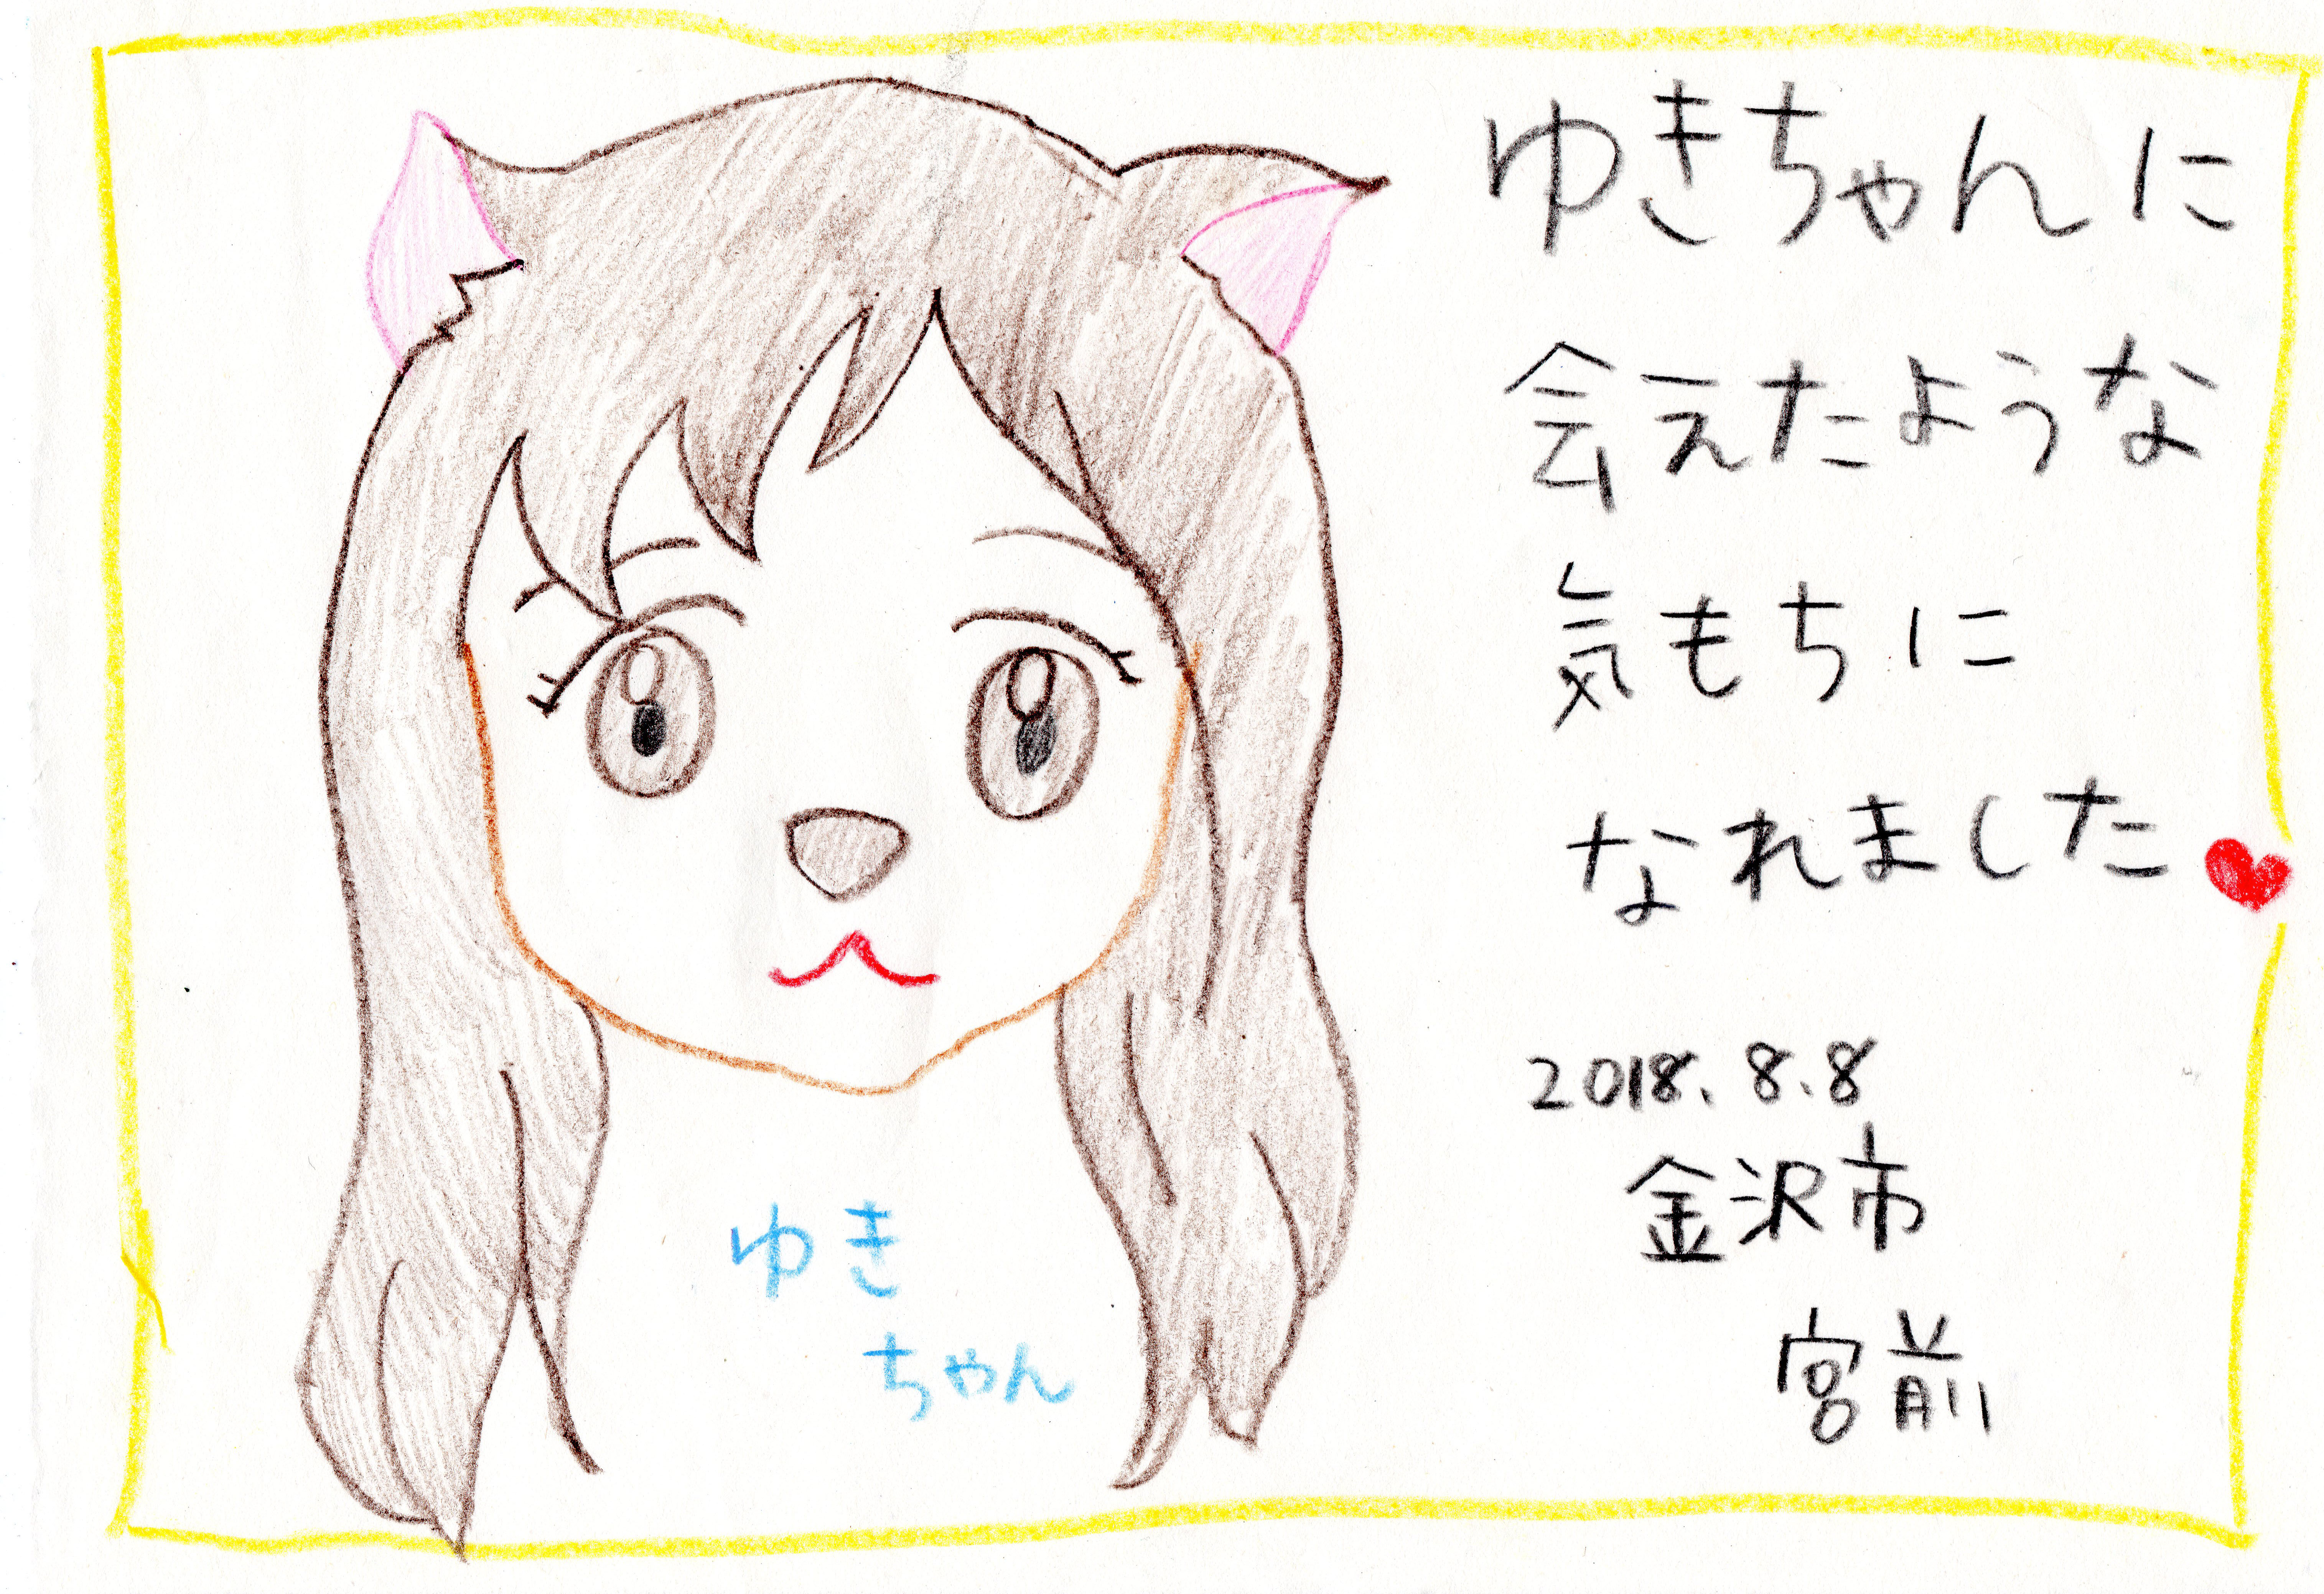 ゆきちゃんに
会えたような
気もちに
なれました
2018.8.8
金沢市
宮前
ゆき
ちゃん